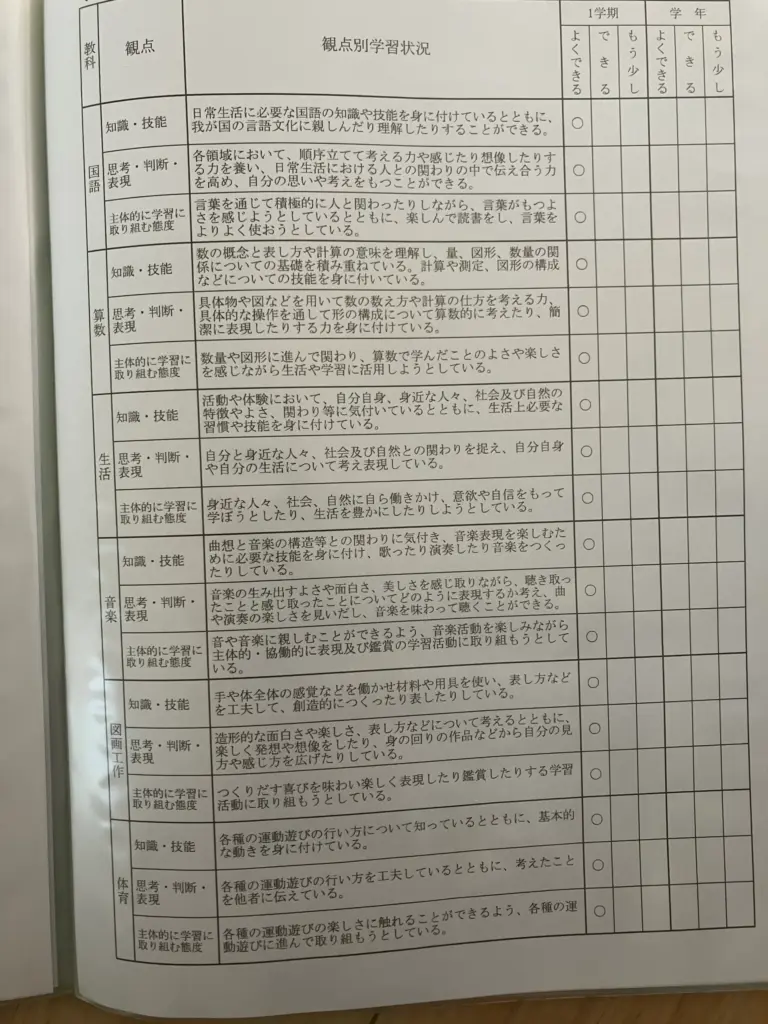 教科 観点 観点別学習状況 1学期 学年
よくできる できる もう少し よくできる できる もう少し
国語
知識・技能
日常生活に必要な国語の知識や技能を身に付けているとともに、
我が国の言語文化に親しんだり理解したりすることができる。
○
思考・判断・
表現
各領域において、順序立てて考える力や感じたり想像したりす
る力を養い、日常生活における人との関わりの中で伝え合う力
を高め、自分の思いや考えをもつことができる。
○
主体的に学習に
取り組む態度
言葉を通じて積極的に人と関わったりしながら、言葉がもつよ
さを感じようとしているとともに、楽しんで読書をし、言葉を
よりよく使おうとしている。
○
算数
知識・技能
数の概念と表し方や計算の意味を理解し、量、図形、数量の関
係についての基礎を積み重ねている。計算や測定、図形の構成
などについての技能を身に付いている。
○
思考・判断・
表現
具体物や図などを用いて数の数え方や計算の仕方を考える力、
具体的な操作を通して形の構成について算数的に考えたり、簡
潔に表現したりする力を身に付けている。
○
主体的に学習に
取り組む態度
数量や図形に進んで関わり、算数で学んだことのよさや楽しさ
を感じながら生活や学習に活用しようとしている。
○
生活
知識・技能
活動や体験において、自分自身、身近な人々、社会及び自然の
特徴やよさ、関わり等に気付いているとともに、生活上必要な
習慣や技能を身に付けている。
○
思考・判断・
表現
自分と身近な人々、社会及び自然との関わりを捉え、自分自身
や自分の生活について考え表現している。
○
主体的に学習に
取り組む態度
身近な人々、社会、自然に自ら働きかけ、意欲や自信をもって
学ぼうとしたり、生活を豊かにしたりしようとしている。
○
音楽
知識・技能
曲想と音楽の構造等との関わりに気付き、音楽表現を楽しむた
めに必要な技能を身に付け、歌ったり演奏したり音楽をつくっ
たりしている。
○
思考・判断・
表現
音楽の生み出すよさや面白さ、美しさを感じ取りながら、聴き取っ
たことと感じ取ったことについてどのように表現するか考え、曲
や演奏の楽しさを見いだし、音楽を味わって聴くことができる。
○
主体的に学習に
取り組む態度
音や音楽に親しむことができるよう、音楽活動を楽しみながら
主体的・協働的に表現及び鑑賞の学習活動に取り組もうとして
いる。
○
図画工作
知識・技能
手や体全体の感覚などを働かせ材料や用具を使い、表し方など
を工夫して、創造的につくったり表したりしている。
○
思考・判断・
表現
造形的な面白さや楽しさ、表し方などについて考えるとともに、
楽しく発想や想像をしたり、身の回りの作品などから自分の見
方や感じ方を広げたりしている。
○
主体的に学習に
取り組む態度
つくりだす喜びを味わい楽しく表現したり鑑賞したりする学習
活動に取り組もうとしている。
○
体育
知識・技能
各種の運動遊びの行い方について知っているとともに、基本的
な動きを身に付けている。
○
思考・判断・
表現
各種の運動遊びの行い方を工夫しているとともに、考えたこと
を他者に伝えている。
○
主体的に学習に
取り組む態度
各種の運動遊びの楽しさに触れることができるよう、各種の運
動遊びに進んで取り組もうとしている。
○